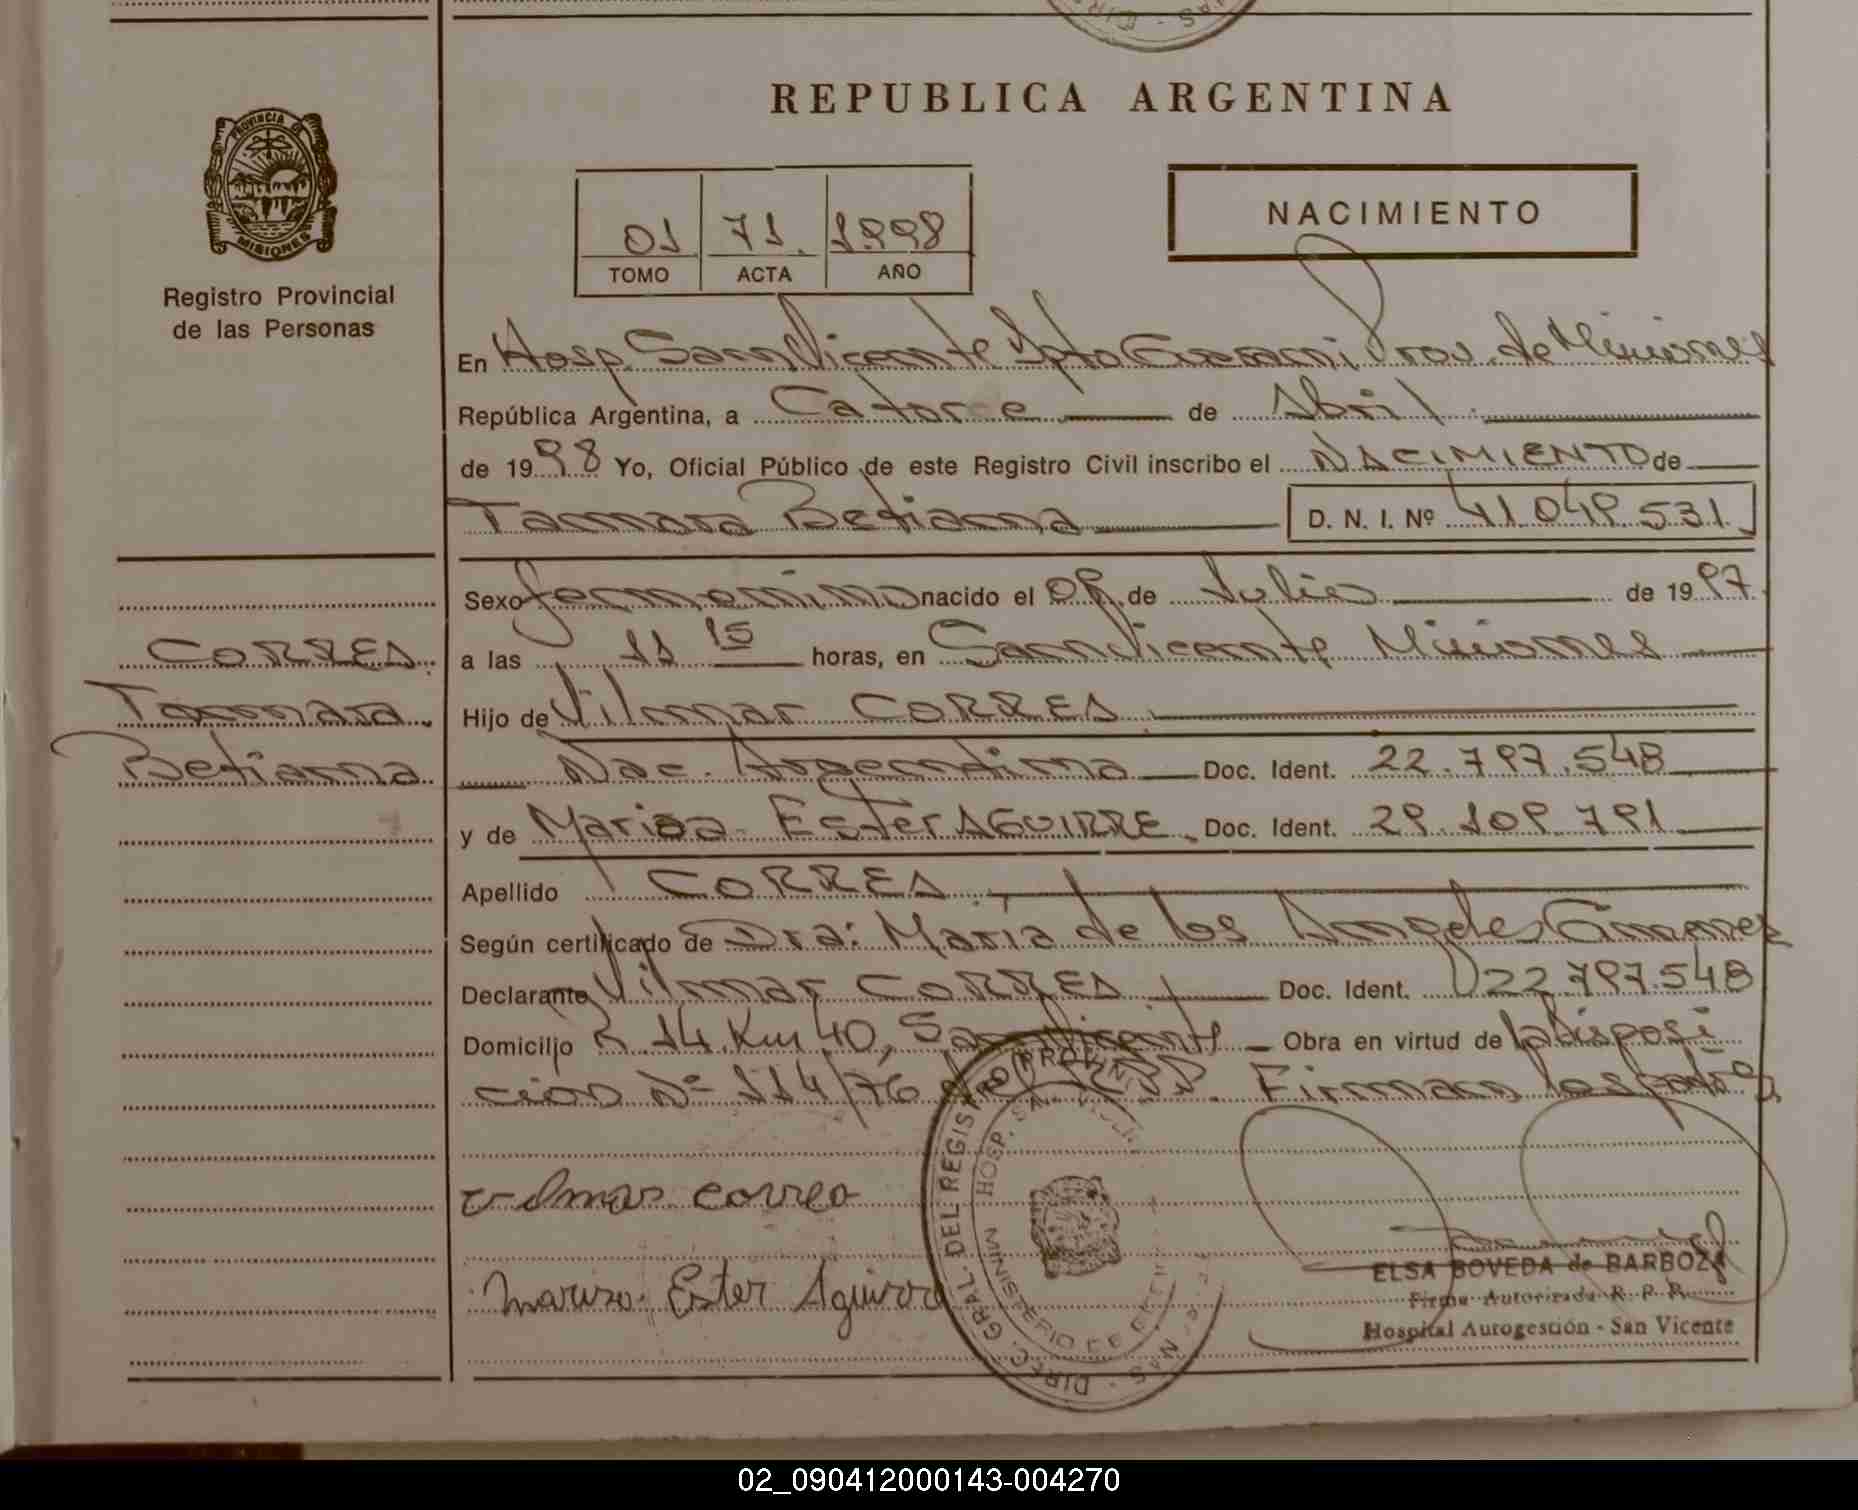 REPUBLICA ARGENTINA
PROVINCIA DE
MISIONES
Registro Provincial
de las Personas
01 71 1998
TOMO ACTA AÑO
NACIMIENTO
En Hosp. San Vicente Dpto Guarani Prov. de Misiones
República Argentina, a Catorce de Abril
de 1998 Yo, Oficial Público de este Registro Civil inscribo el NACIMIENTO de
Tamara Betiana D. N. I. Nº 41.049.531
Sexo femenino nacido el 09 de Julio de 1997
a las 11 15 horas, en San Vicente Misiones
Hijo de Vilmar CORREA
Nac. Argentina Doc. Ident. 22.797.548
y de Marisa Ester AGUIRRE Doc. Ident. 29.109.791
Apellido CORREA
Según certificado de Dra: María de los Angeles Gimenez
Declarante Vilmar CORREA Doc. Ident. 22.797.548
Domicilio R 14 Km 40, San Vicente Obra en virtud de la disposi
cion Nº 114/76 Firman los padres
CORREA
Tamara
Betiana
vilmar correa
Marisa Ester Aguirre
DIREC. GRAL. DEL REGISTRO PROV.
HOSP. SAN VICEN
MINISTERIO DE
ELSA BOVEDA de BARBOZA
Firma Autorizada R. P. P.
Hospital Autogestión - San Vicente
02_090412000143-004270